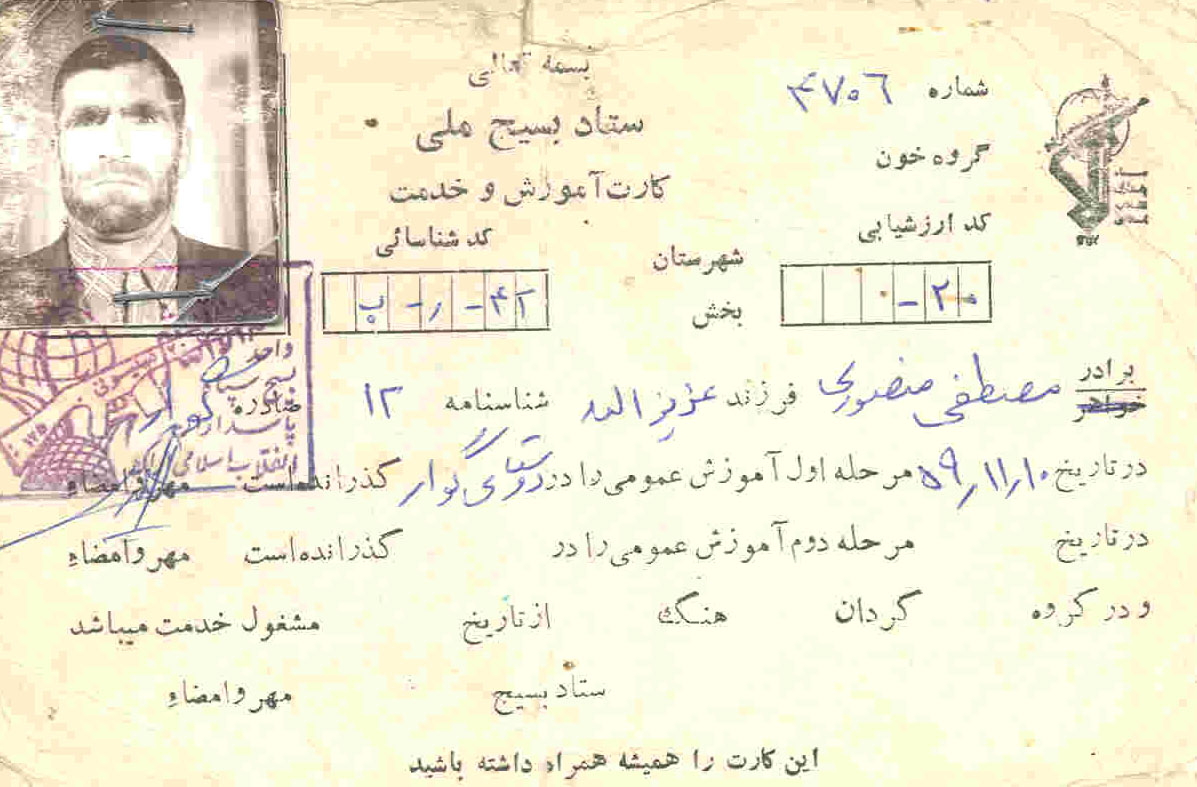 بسمه تعالی
ستاد بسیج ملی
کارت آموزش و خدمت
شماره ۴۷۰۶
گروه خون
کد ارزشیابی
۲۰-
شهرستان
بخش
کد شناسائی
برادر
خواهر
مصطفی منصوری فرزند عزیز الله شناسنامه ۱۲ صادره کوار
در تاریخ ۵۹٫۱۱٫۱۰ مرحله اول آموزش عمومی را در روستای کوار گذرانده است مهر و امضاء
در تاریخ مرحله دوم آموزش عمومی را در گذرانده است مهر و امضاء
و در گروه گردان هنگ از تاریخ مشغول خدمت میباشد
ستاد بسیج مهر و امضاء
این کارت را همیشه همراه داشته باشید
واحد
بسیج سپاه
پاسداران
انقلاب اسلامی